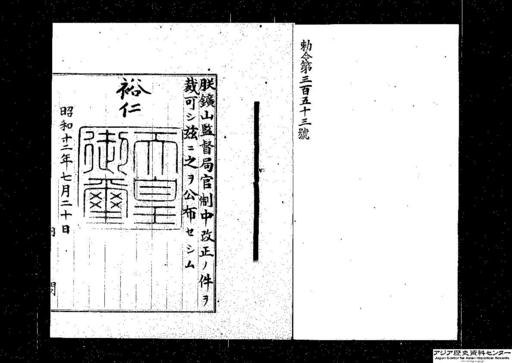 勅令第三百五十三號
朕鑛山監督局官制中改正ノ件ヲ
裁可シ玆ニ之ヲ公布セシム
裕仁
天皇
御璽
昭和十二年七月二十日
内閣
アジア歴史資料センター
Japan Center for Asian Historical Records